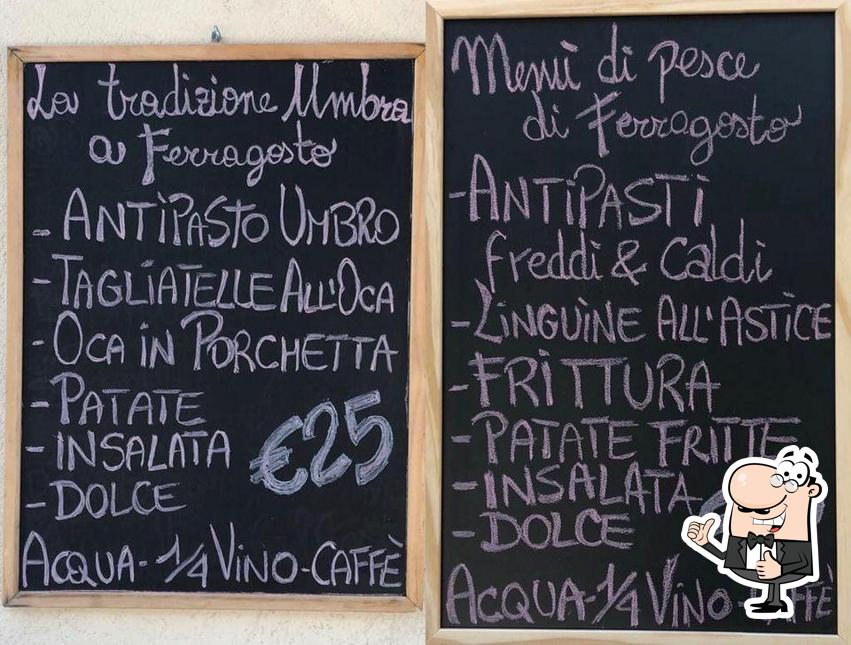 La tradizione Umbra
a Ferragosto
- ANTIPASTO UMBRO
- TAGLIATELLE ALL'OCA
- OCA IN PORCHETTA
- PATATE
- INSALATA
- DOLCE
€25
ACQUA - 1/4 VINO - CAFFÈ
Menù di pesce
di Ferragosto
- ANTIPASTI
freddi & Caldi
- LINGUINE ALL'ASTICE
- FRITTURA
- PATATE FRITTE
- INSALATA
- DOLCE
ACQUA - 1/4 VINO -